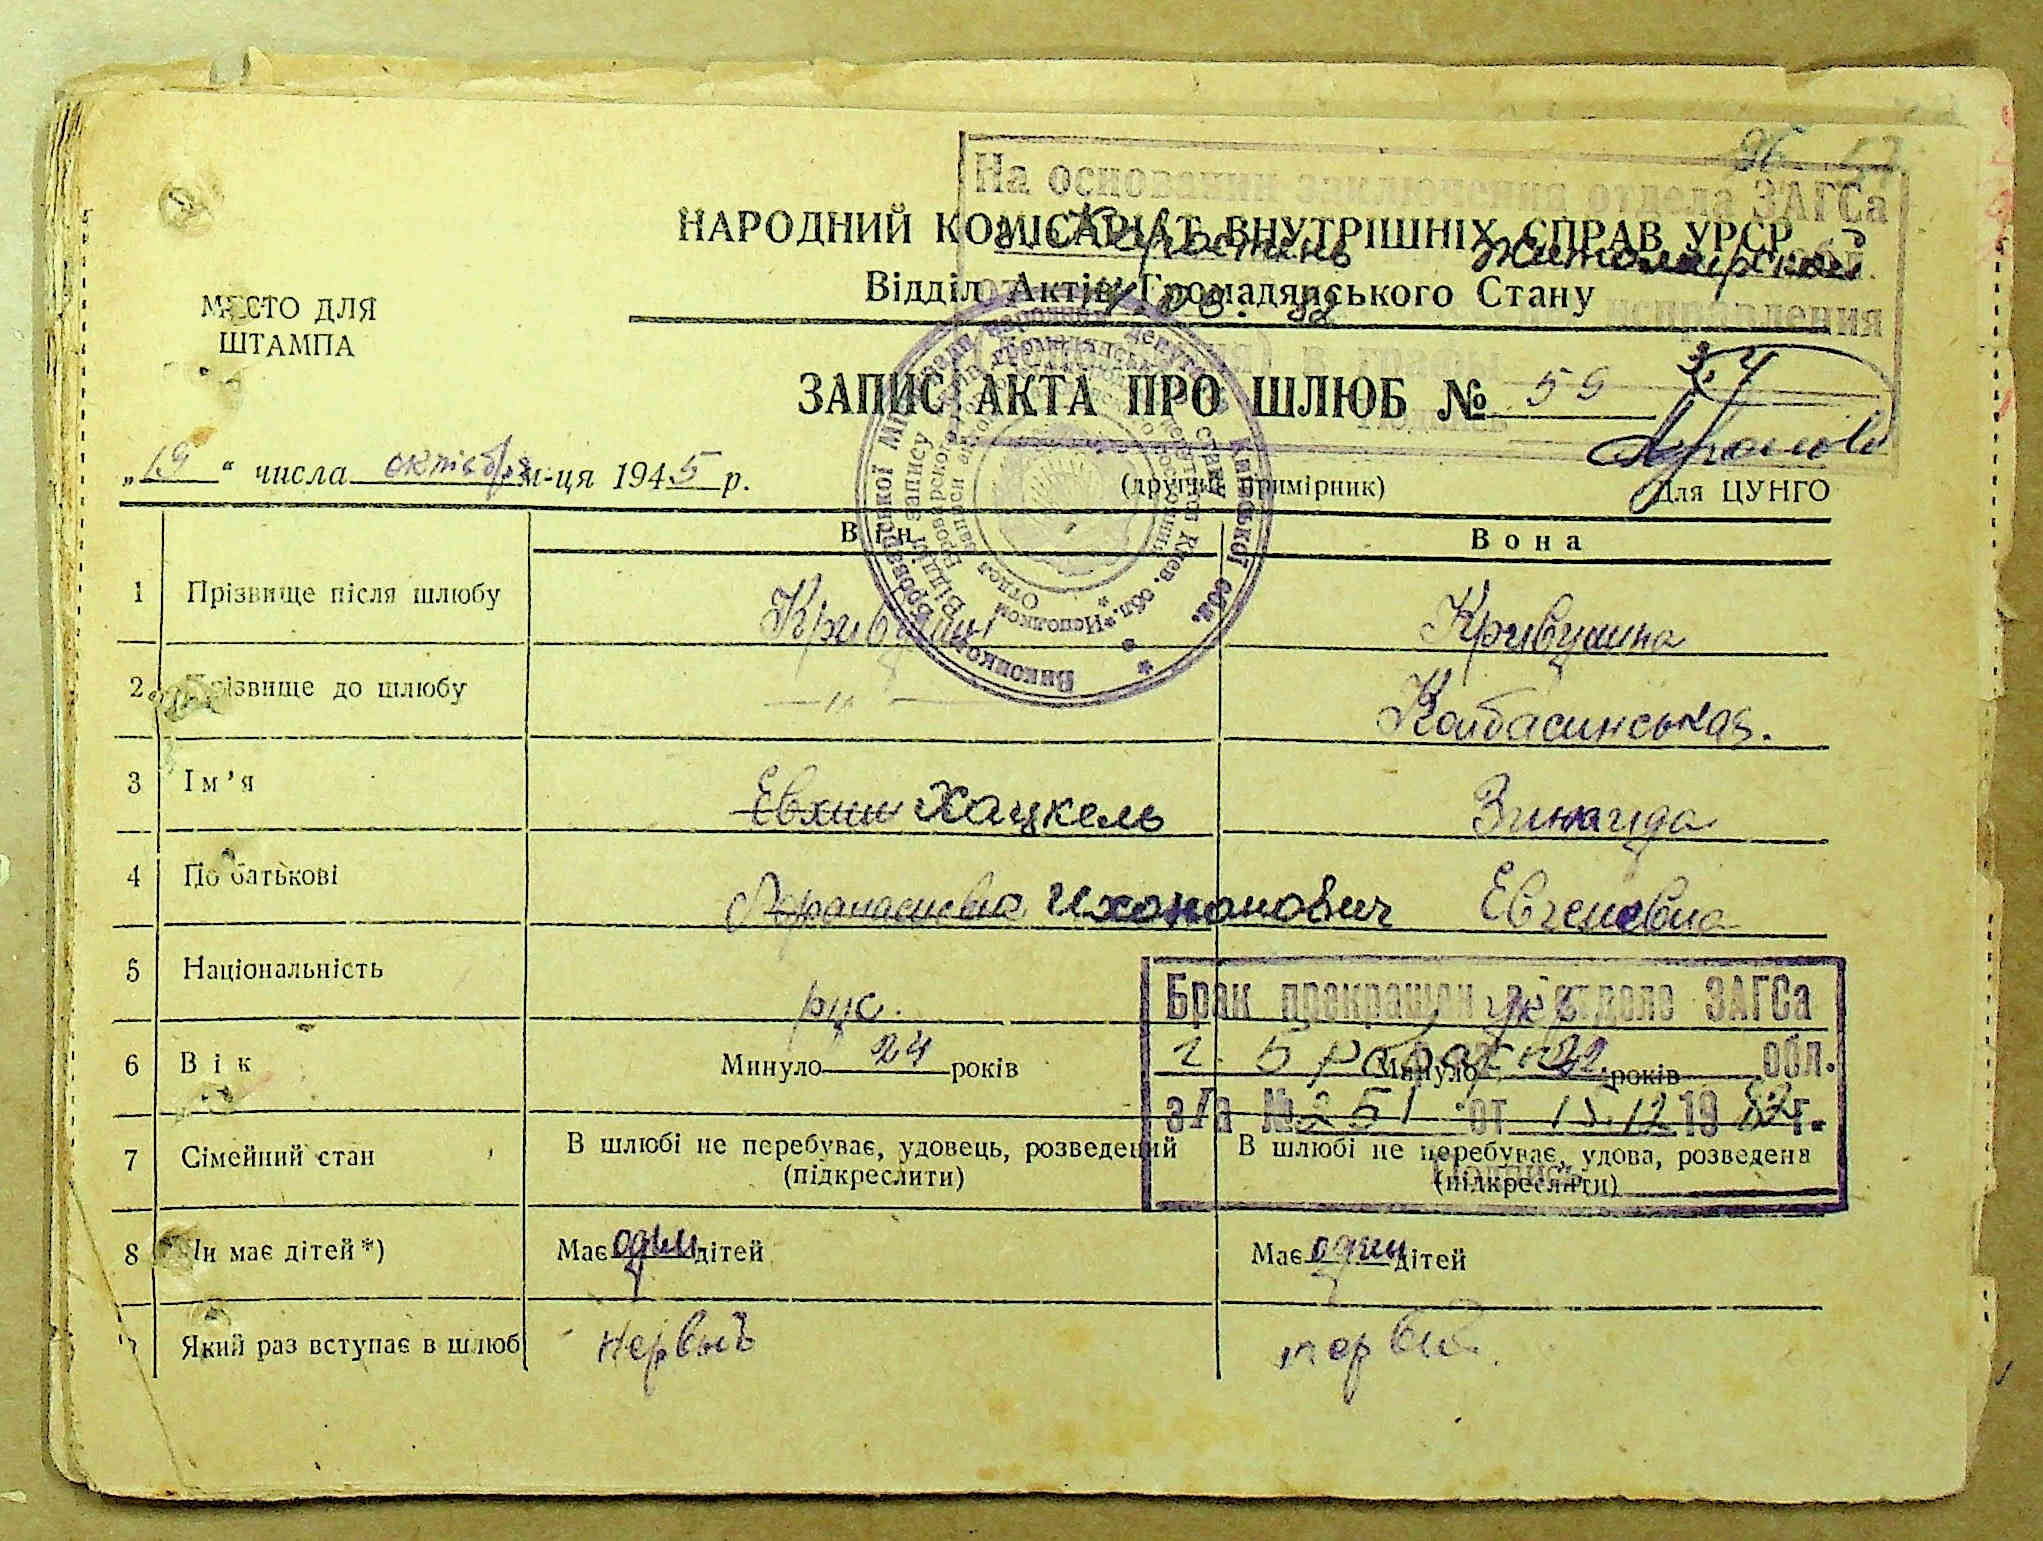 На основании заключения отдела ЗАГСа
НАРОДНИЙ КОМІСАРІАТ ВНУТРІШНІХ СПРАВ УРСР
Житомирской обл.
Відділ Актів Громадянського Стану
исправления
МЕСТО ДЛЯ
ШТАМПА
ЗАПИС АКТА ПРО ШЛЮБ № 59
3, 4
„19“ числа октября м-ця 1945 р.
(другий примірник)
Для ЦУНГО
Він
Вона
1 Прізвище після шлюбу Кривушин Кривушина
2 Прізвище до шлюбу —"— Колбасинськая.
3 Ім'я Евхим Хацкель Зинаида
4 По батькові Ихононович Евгеневна
5 Національність рус. укр
Брак прекращен в отделе ЗАГСа
6 Вік Минуло 24 років Минуло 22 років
г. обл.
з/а № 251 от 15.12 1982 г.
7 Сімейний стан В шлюбі не перебуває, удовець, розведений В шлюбі не перебуває, удова, розведена
(підкреслити) (підкреслити)
Подпись
8 Чи має дітей*) Має один дітей Має один дітей
Який раз вступає в шлюб первый первый.